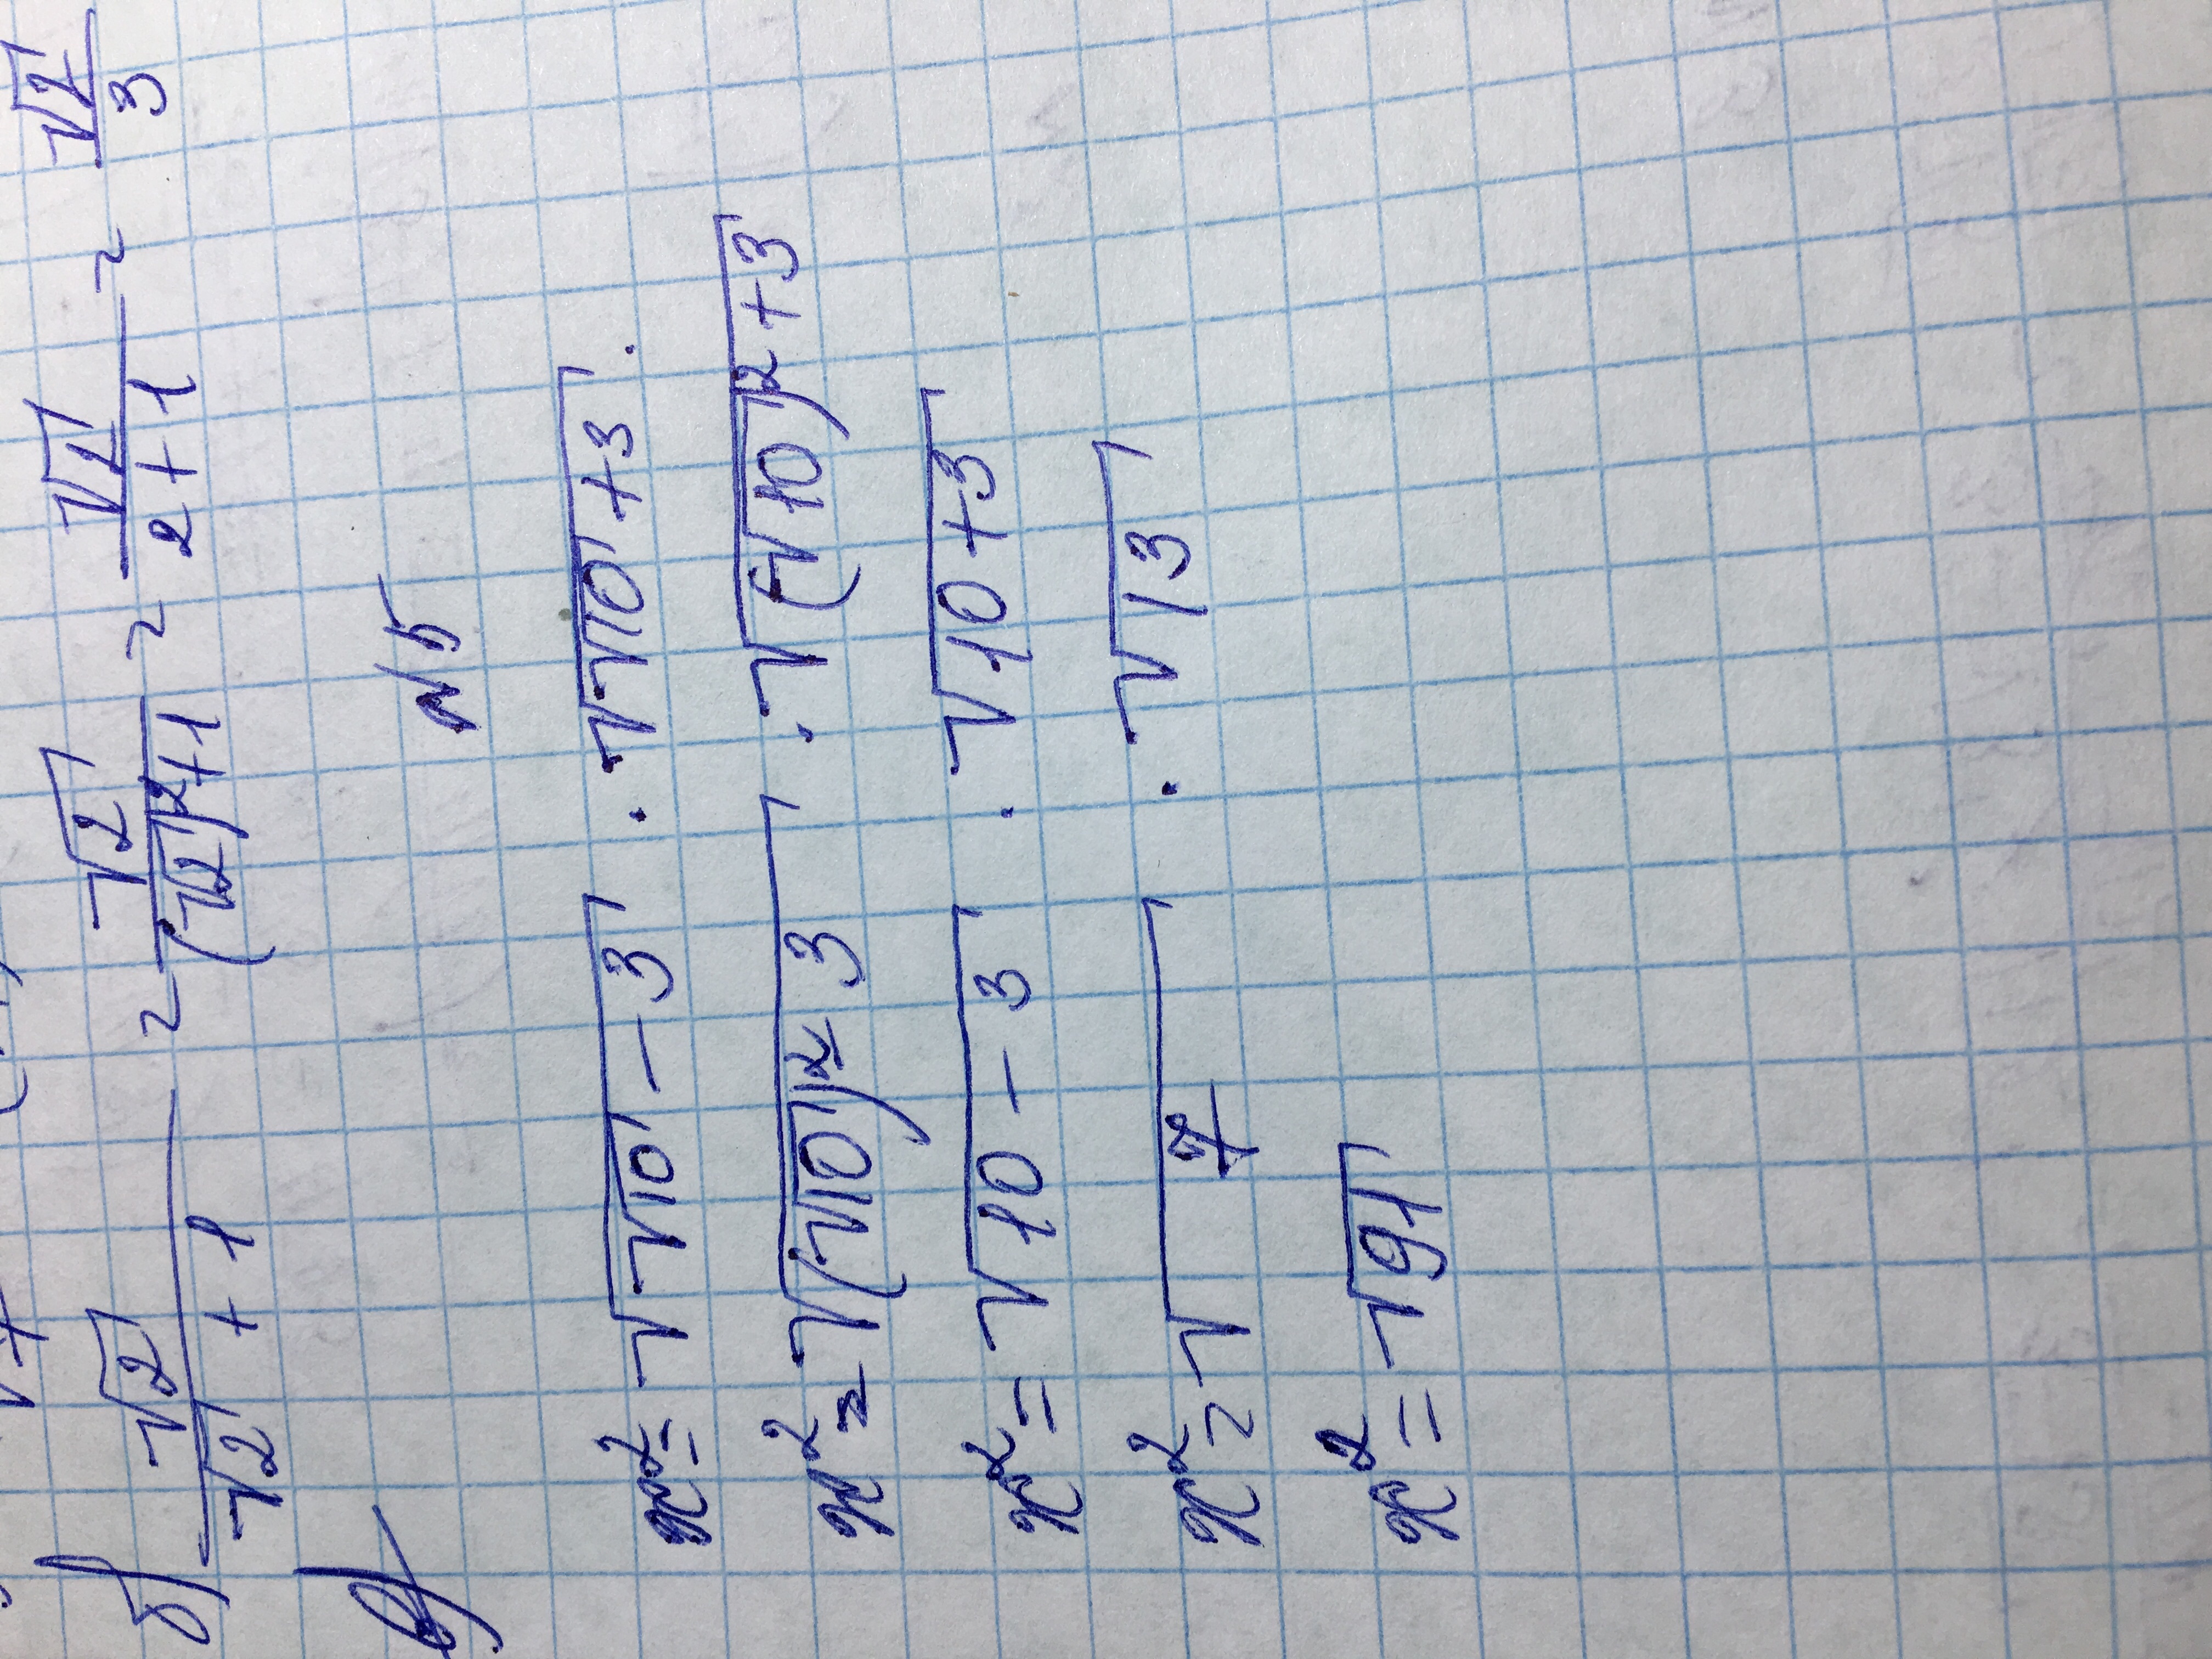 б) √2 / (√2 + 1) = √2 / ((√2)² + 1) = √2 / (2 + 1) = √2 / 3
в)
N5
x² = √(√10 − 3) · √(√10 + 3)
x² = √((√10)² − 3) · √((√10)² + 3)
x² = √(10 − 3) · √(10 + 3)
x² = √7 · √13
x² = √91